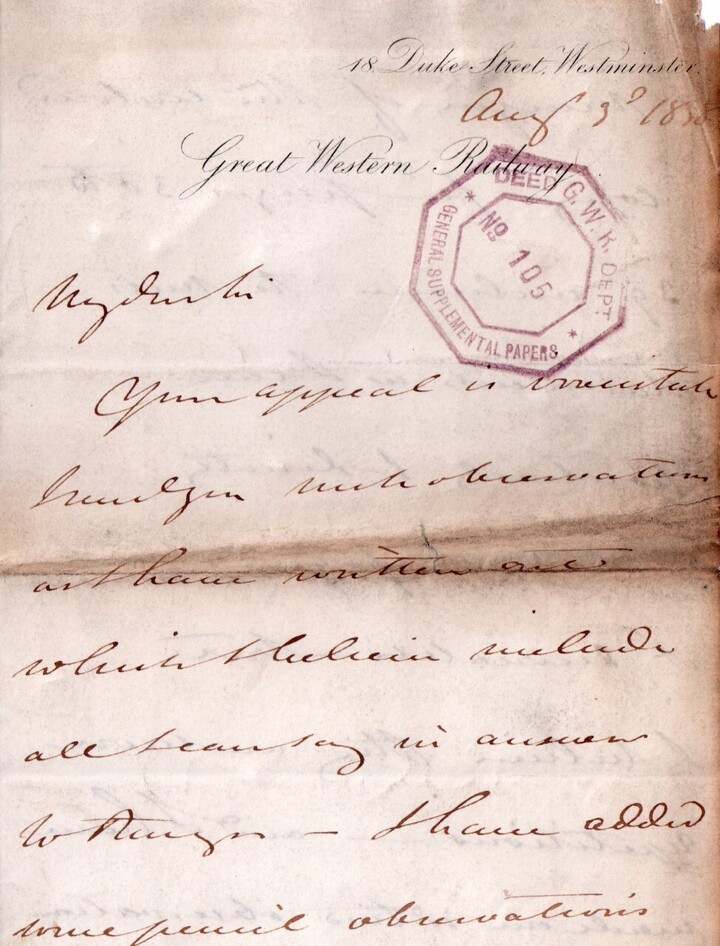 18 Duke Street, Westminster.
Aug 3d
Great Western Railway
DEED G.W.R. DEPT
No 105
GENERAL SUPPLEMENTAL PAPERS
My dear Sir
Your appeal is
I send you such observations
as I have written out
which I believe include
all I can say in answer
to — I have added
some pencil observations